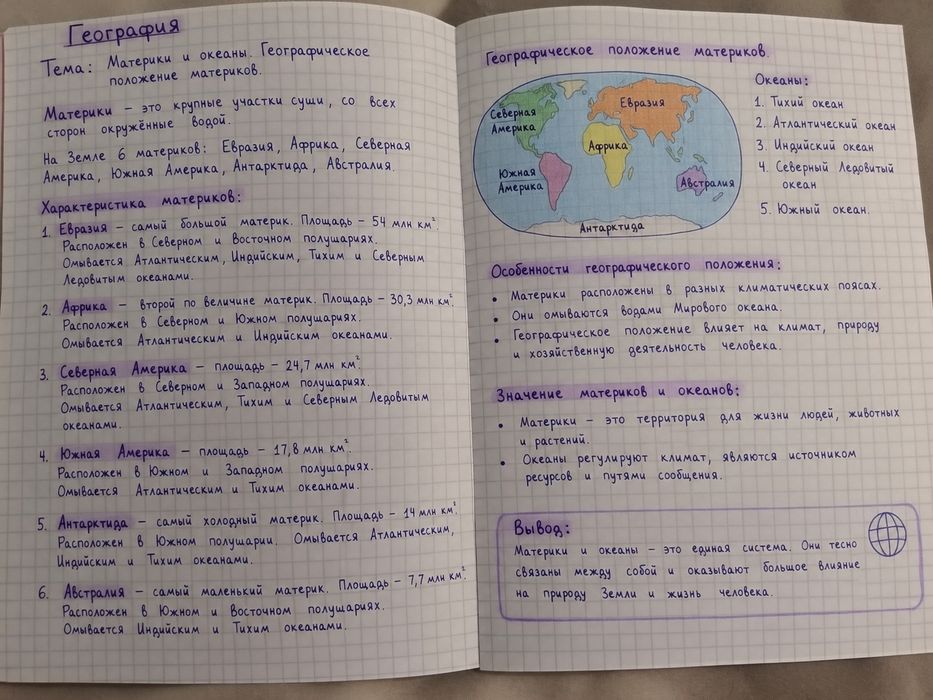 География
Тема: Материки и океаны. Географическое
положение материков.
Материки – это крупные участки суши, со всех
сторон окружённые водой.
На Земле 6 материков: Евразия, Африка, Северная
Америка, Южная Америка, Антарктида, Австралия.
Характеристика материков:
1. Евразия – самый большой материк. Площадь – 54 млн км².
Расположен в Северном и Восточном полушариях.
Омывается Атлантическим, Индийским, Тихим и Северным
Ледовитым океанами.
2. Африка – второй по величине материк. Площадь – 30,3 млн км².
Расположен в Северном и Южном полушариях.
Омывается Атлантическим и Индийским океанами.
3. Северная Америка – площадь – 24,7 млн км².
Расположен в Северном и Западном полушариях.
Омывается Атлантическим, Тихим и Северным Ледовитым
океанами.
4. Южная Америка – площадь – 17,8 млн км².
Расположен в Южном и Западном полушариях.
Омывается Атлантическим и Тихим океанами.
5. Антарктида – самый холодный материк. Площадь – 14 млн км².
Расположен в Южном полушарии. Омывается Атлантическим,
Индийским и Тихим океанами.
6. Австралия – самый маленький материк. Площадь – 7,7 млн км².
Расположен в Южном и Восточном полушариях.
Омывается Индийским и Тихим океанами.
Географическое положение материков.
Северная
Америка
Евразия
Африка
Южная
Америка
Австралия
Антарктида
Океаны:
1. Тихий океан
2. Атлантический океан
3. Индийский океан
4. Северный Ледовитый
океан
5. Южный океан.
Особенности географического положения:
• Материки расположены в разных климатических поясах.
• Они омываются водами Мирового океана.
• Географическое положение влияет на климат, природу
и хозяйственную деятельность человека.
Значение материков и океанов:
• Материки – это территория для жизни людей, животных
и растений.
• Океаны регулируют климат, являются источником
ресурсов и путями сообщения.
Вывод:
Материки и океаны – это единая система. Они тесно
связаны между собой и оказывают большое влияние
на природу Земли и жизнь человека.